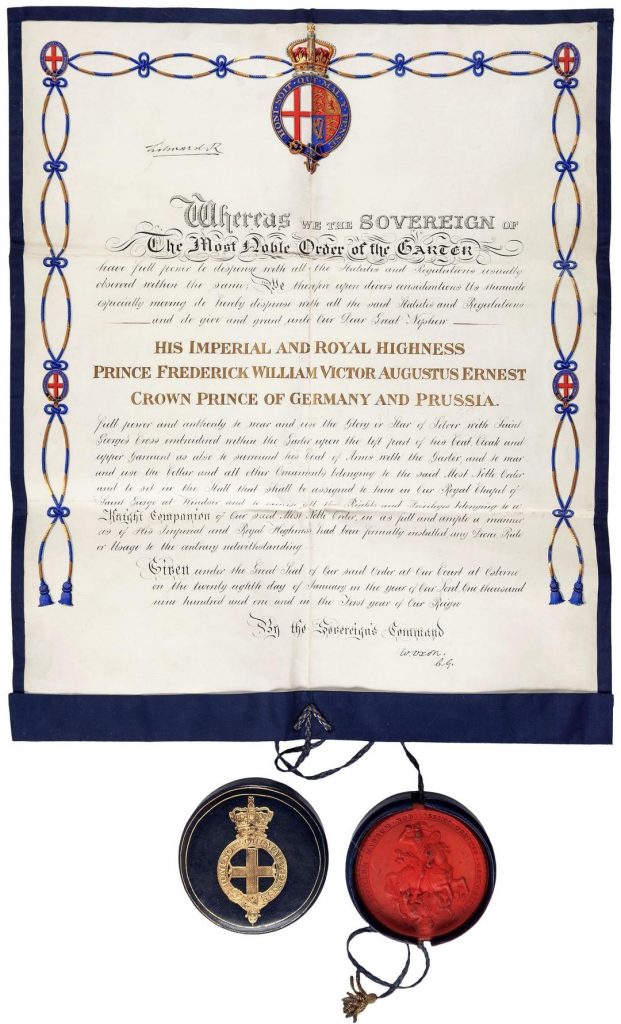 HONI SOIT QUI MAL Y PENSE
Edward R
Whereas WE THE SOVEREIGN OF
The Most Noble Order of the GARTER
have full power to dispense with all the Statutes and Regulations usually
observed within the same; We therefore upon divers considerations Us hereunto
especially moving do hereby dispense with all the said Statutes and Regulations
and do give and grant unto Our Dear Great Nephew
HIS IMPERIAL AND ROYAL HIGHNESS
PRINCE FREDERICK WILLIAM VICTOR AUGUSTUS ERNEST
CROWN PRINCE OF GERMANY AND PRUSSIA.
full power and authority to wear and use the Glory or Star of Silver with Saint
George's Cross embroidered within the Garter upon the left part of his Coat Cloak and
upper Garment as also to surround his Coat of Arms with the Garter and to wear
and use the Collar and all other Ornaments belonging to the said Most Noble Order
and to sit in the Stall that shall be assigned to him in Our Royal Chapel of
Saint George at Windsor and to exercise all the Rights and Privileges belonging to a
Knight Companion of Our said Most Noble Order, in as full and ample a manner
as if His Imperial and Royal Highness had been formally installed any Decree Rule
or Usage to the contrary notwithstanding
Given under the Great Seal of Our said Order at Our Court at Osborne
on the twenty eighth day of January in the year of Our Lord One thousand
nine hundred and one and in the First year of Our Reign
By the Sovereign's Command
W. Oxon.
C.G.